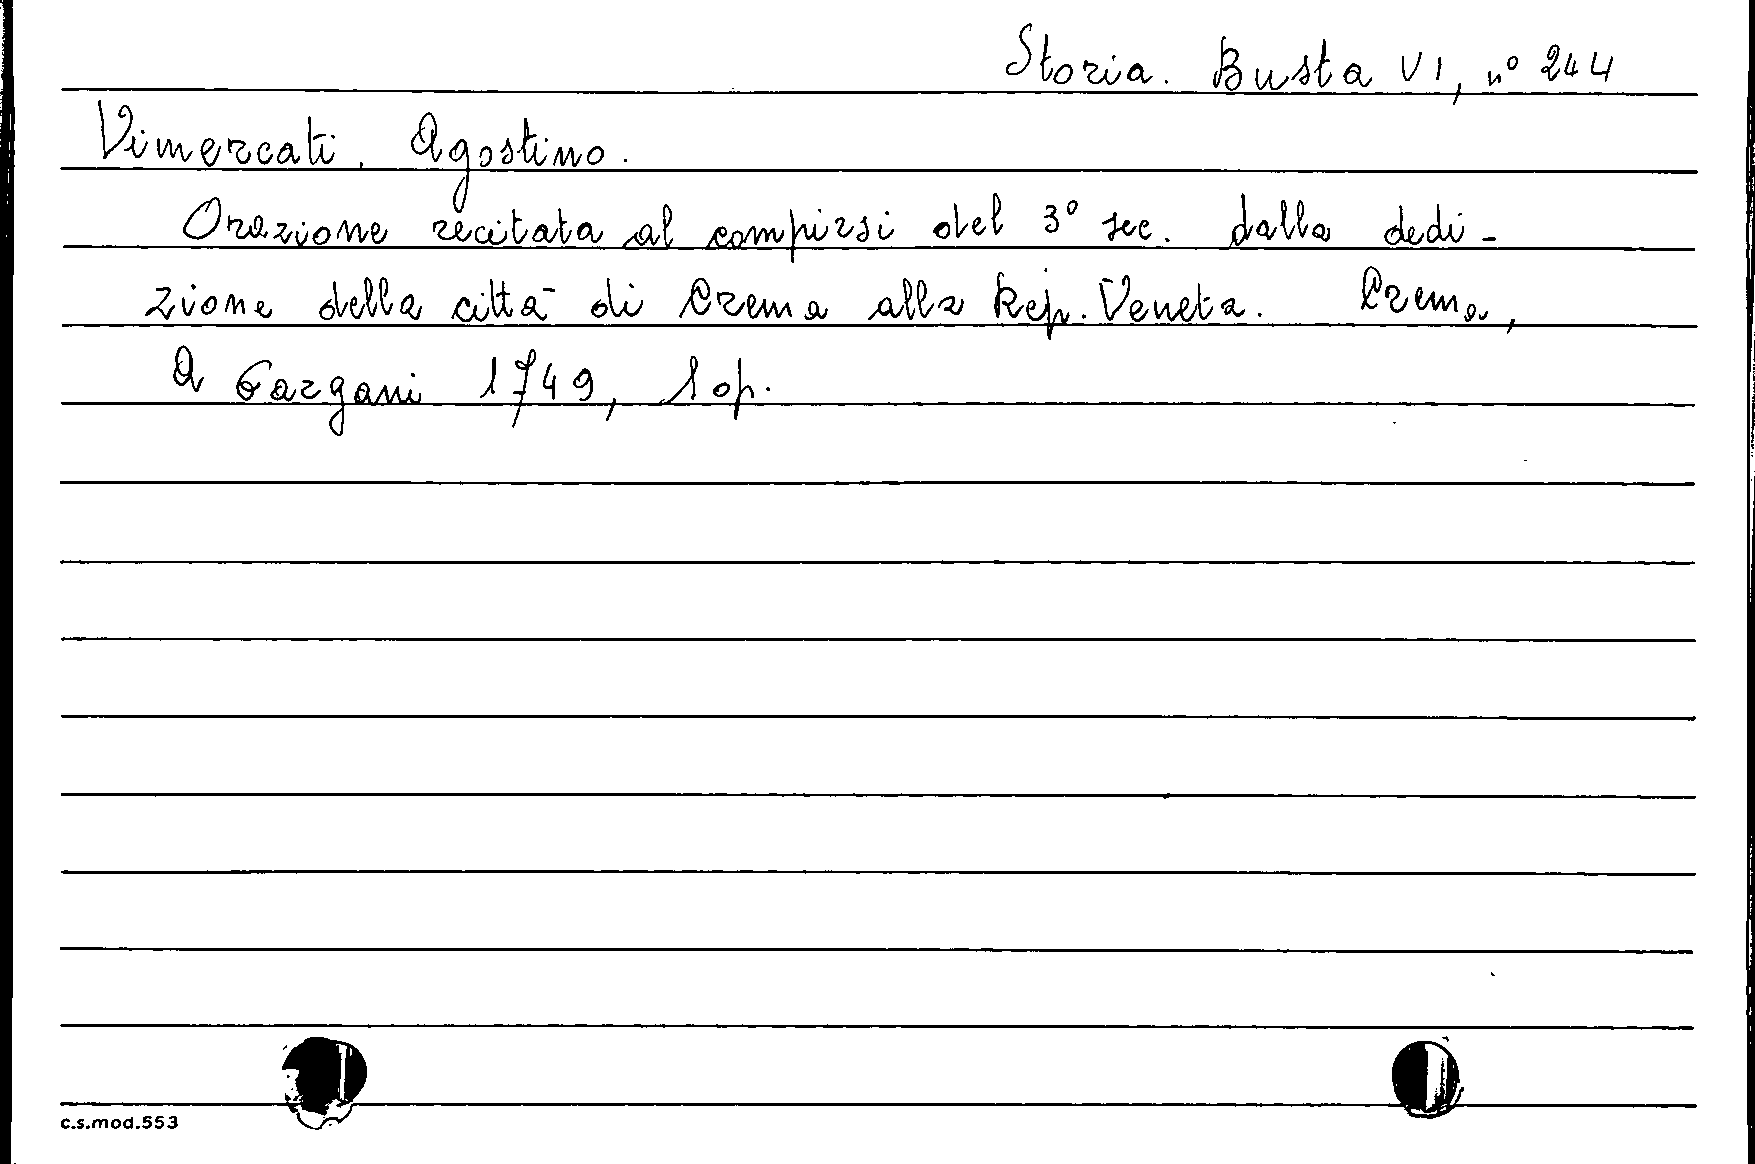 Storia. Busta VI, n° 244
Vimercati. Agostino.
Orazione recitata al compirsi del 3° sec. dalla dedi-
zione della città di Crema alla Rep. Veneta. Crema,
A Gargani 1749, 1 op.
c.s.mod.553